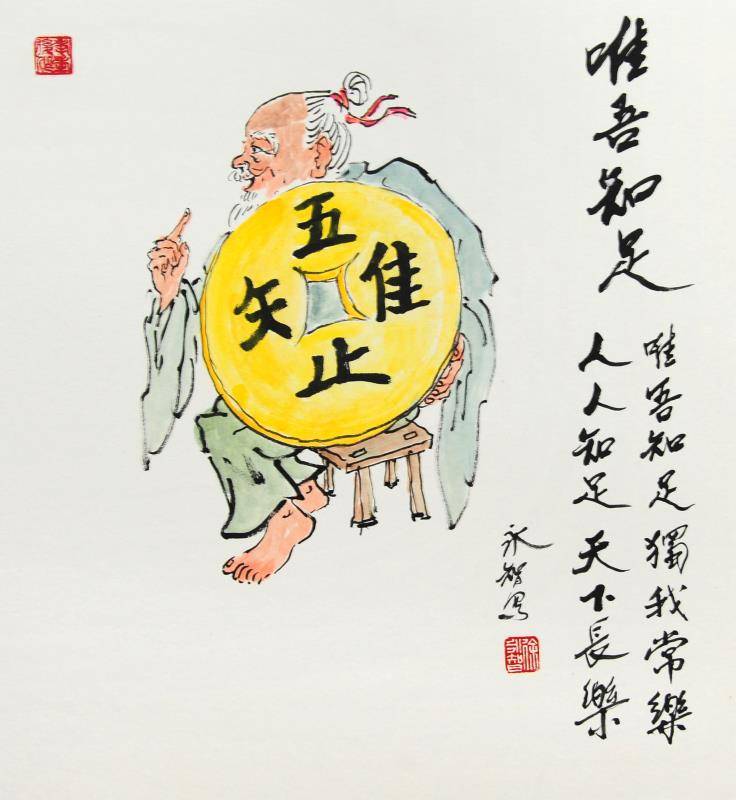 唯吾知足
唯吾知足獨我常樂
人人知足天下長樂
永智写
徐永智
隹五矢止